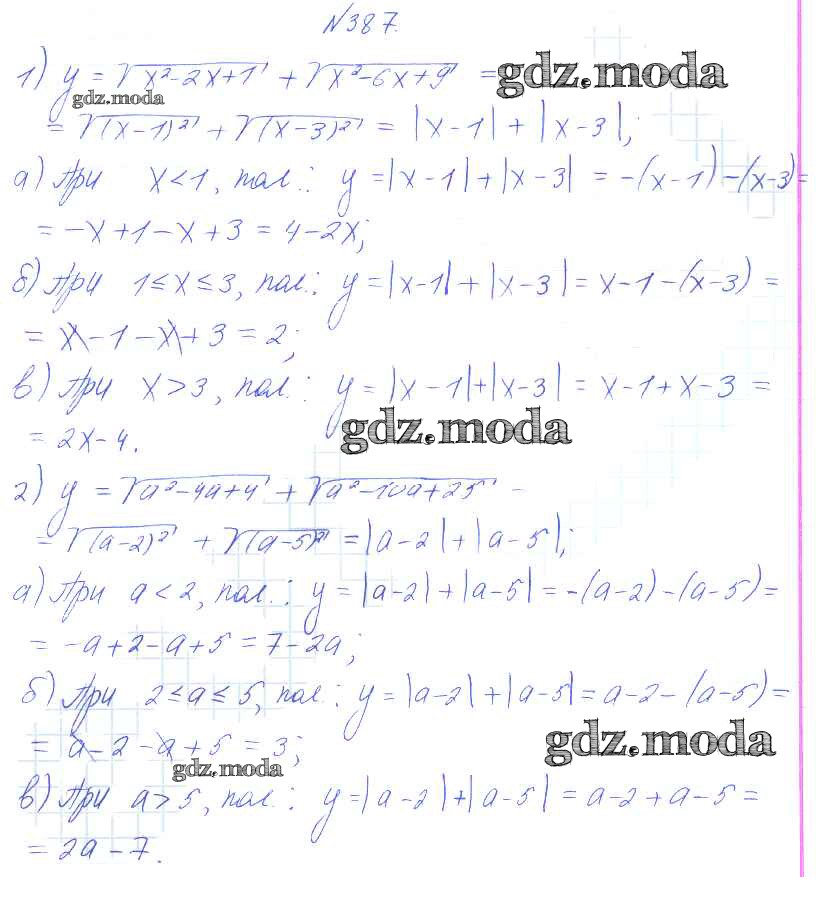 №387.
1) y = √(x²-2x+1) + √(x²-6x+9) = gdz.moda
gdz.moda
= √((x-1)²) + √((x-3)²) = |x-1| + |x-3|;
а) При x<1, пол.: y = |x-1| + |x-3| = -(x-1) -(x-3) =
= -x+1-x+3 = 4-2x;
б) При 1≤x≤3, пол.: y = |x-1| + |x-3| = x-1-(x-3) =
= x-1-x+3 = 2;
в) При x>3, пол.: y = |x-1|+|x-3| = x-1+x-3 =
= 2x-4. gdz.moda
2) y = √(a²-4a+4) + √(a²-10a+25) -
= √((a-2)²) + √((a-5)²) = |a-2| + |a-5|;
а) При a<2, пол.: y = |a-2| + |a-5| = -(a-2)-(a-5) =
= -a+2-a+5 = 7-2a;
б) При 2≤a≤5, пол.: y = |a-2| + |a-5| = a-2-(a-5) =
= a-2-a+5 = 3; gdz.moda
gdz.moda
в) При a>5, пол.: y = |a-2| + |a-5| = a-2+a-5 =
= 2a-7.